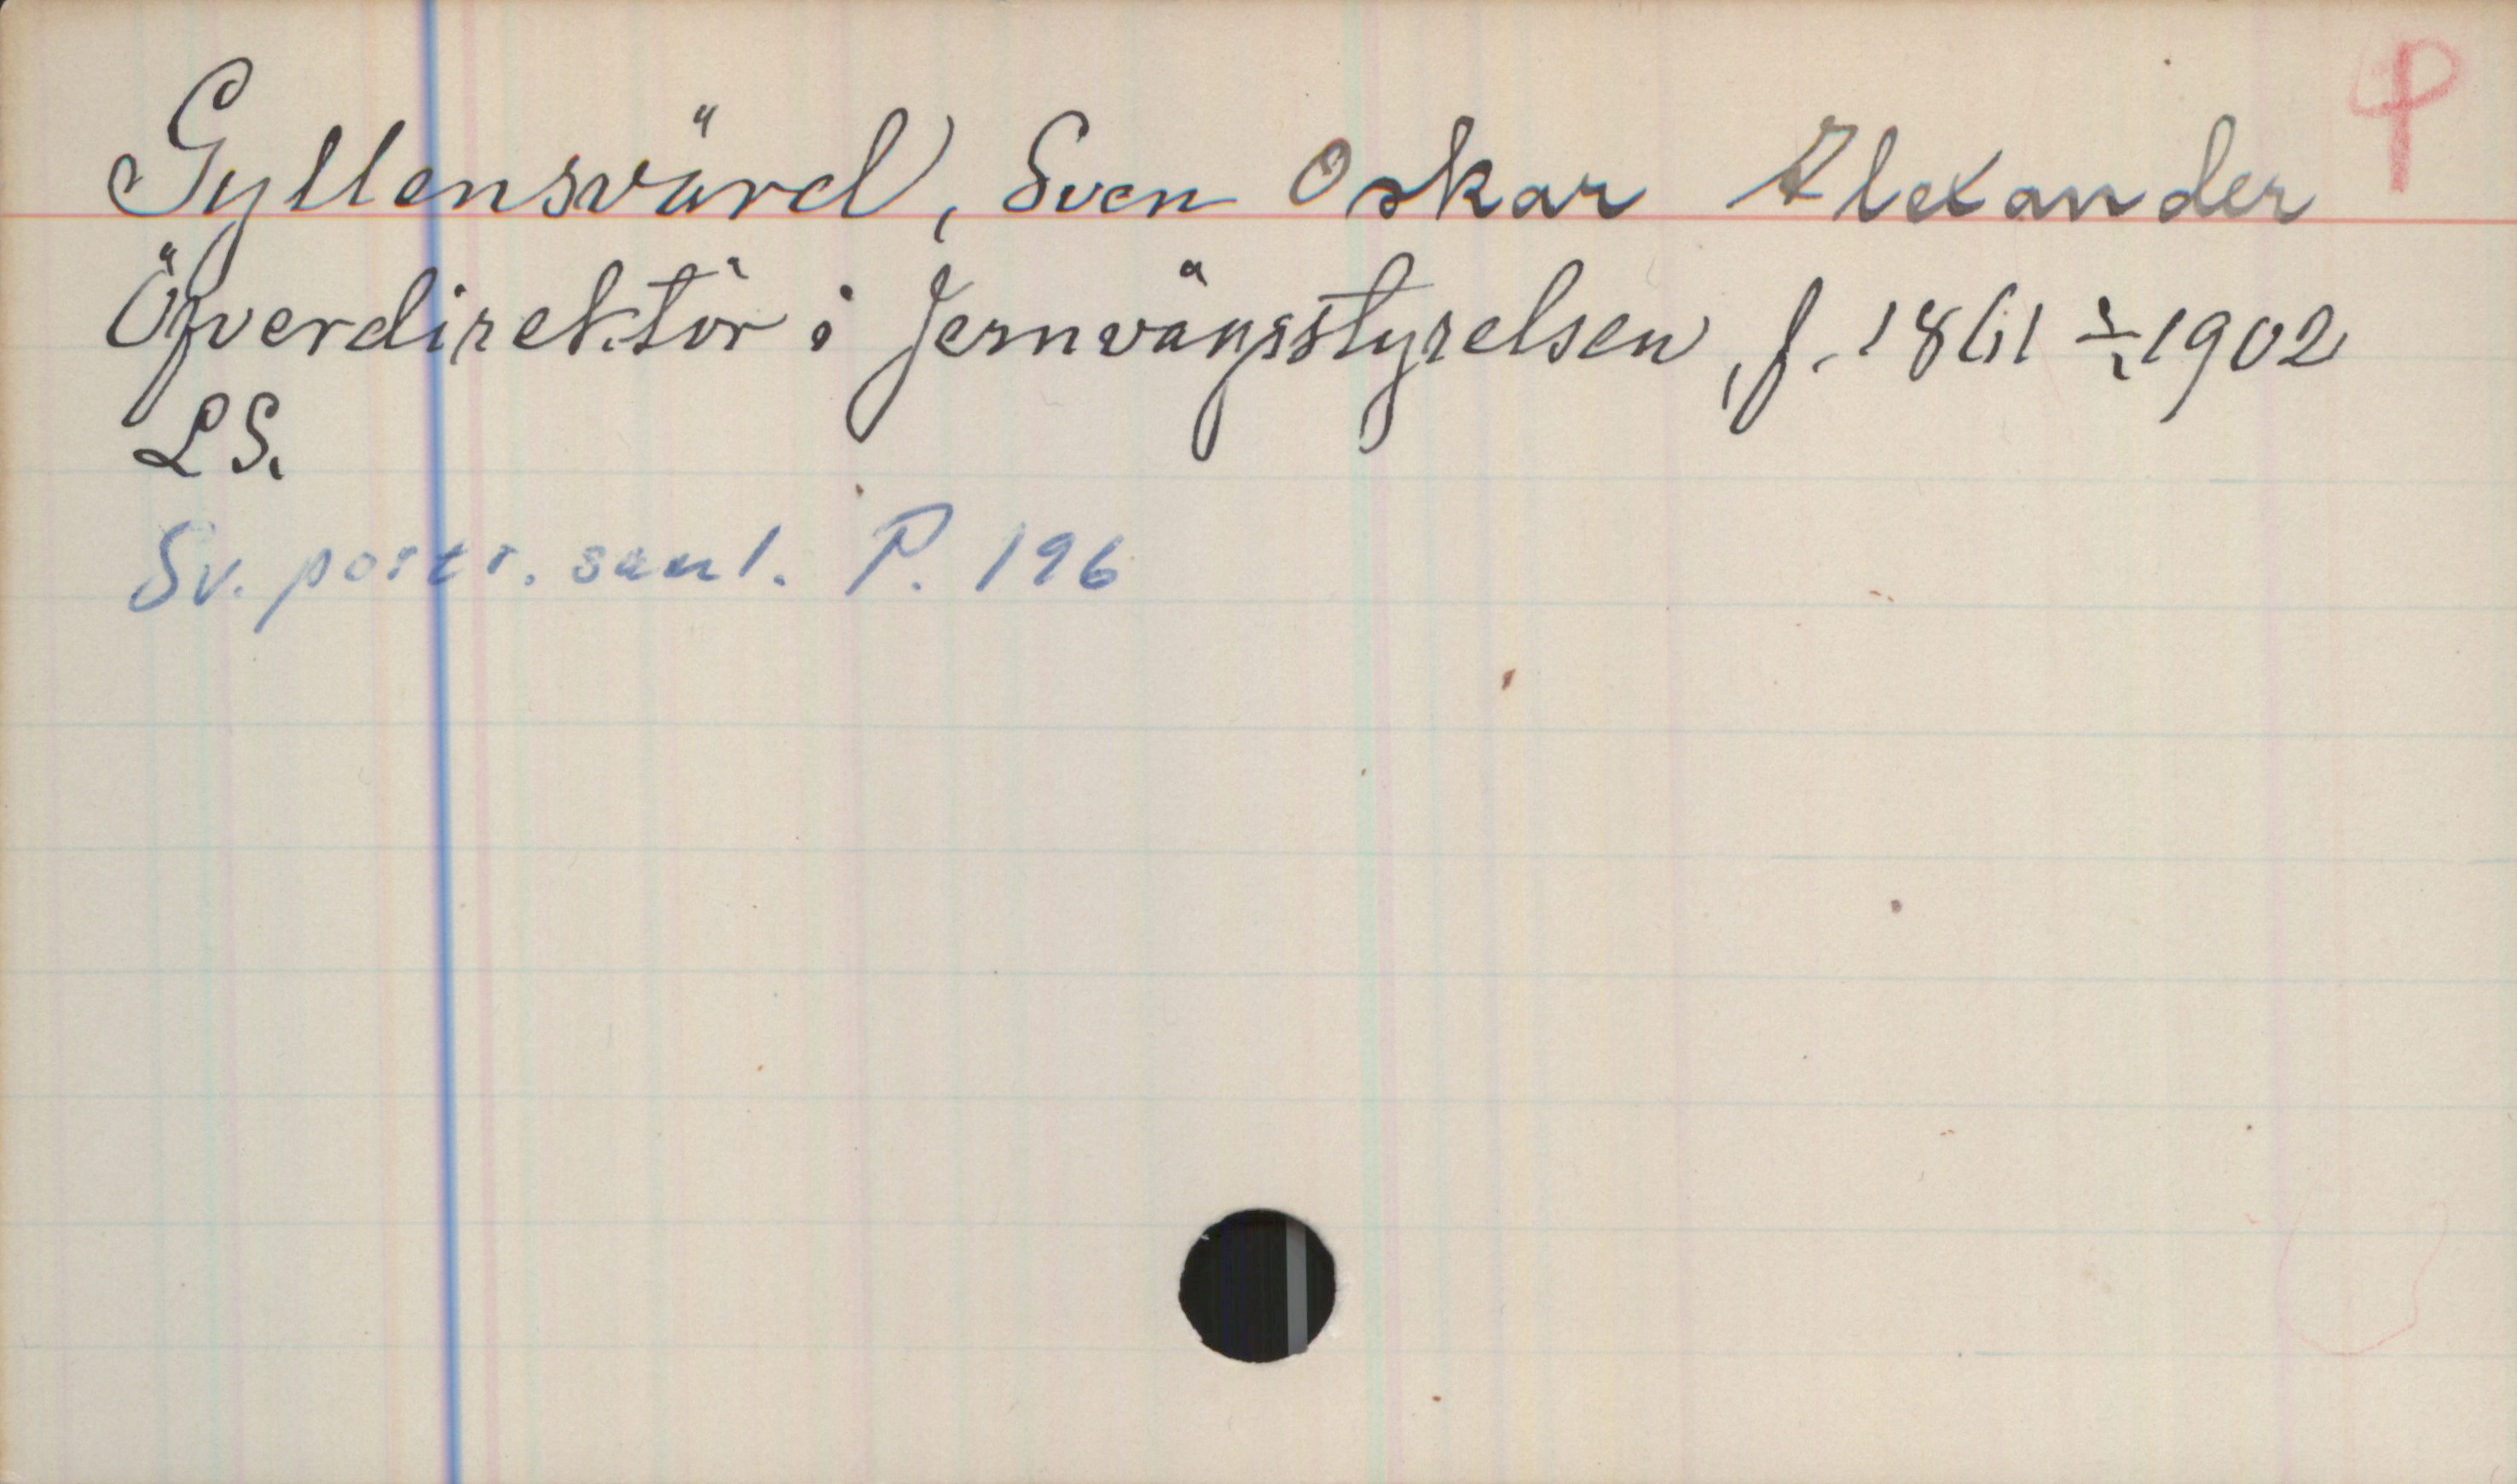 Gyllensvärd, Sven Oskar Alexander P
Öfverdirektör i Jernvägsstyrelsen, f. 1861 1902
LS.
Sv. portr. saml. P. 196